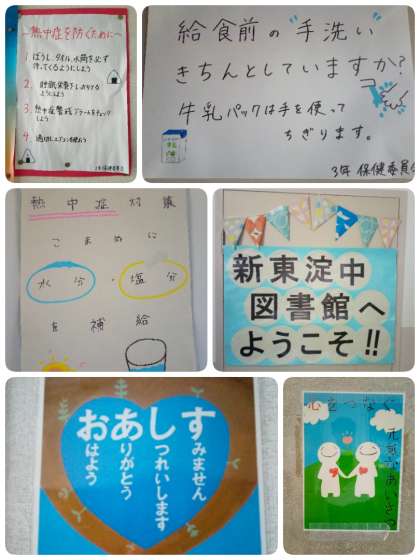 〜熱中症を防ぐために〜
1. ぼうし、タオル、水筒を必ず
持ってくるようにしよう
2. 貯眠栄養をしっかりとる
ようにしよう
3. 熱中症警戒アラートをチェック
しよう
4. 適切にエアコンを使おう
3年保健委員会
給食前の"手洗い"
きちんとしていますか?
牛乳パックは手を使って
ちぎります。
3年 保健委員会
熱中症対策
こまめに
水分 塩分
を補給
新東淀中
図書館へ
ようこそ!!
おはよう
ありがとう
しつれいします
すみません
心をつなぐ
元気なあいさつ